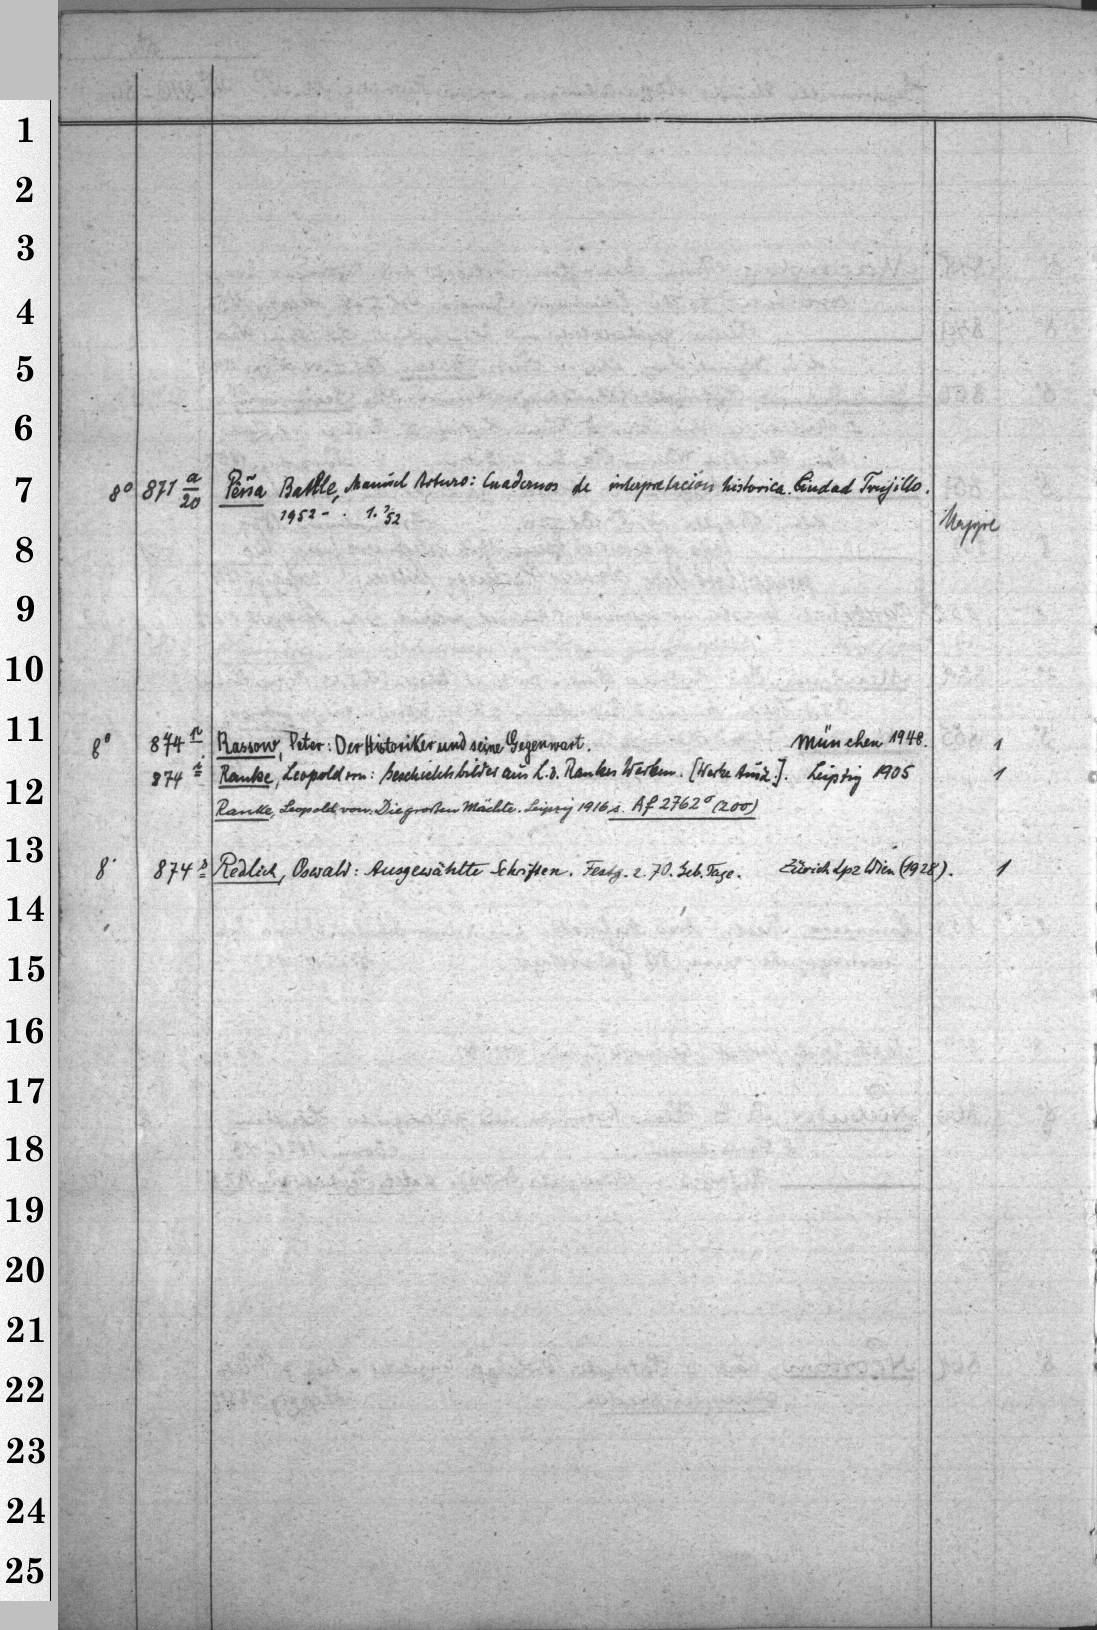 1
2
3
4
5
6
7
8⁰ 871 a/20 Peña Batlle, Manuel Arturo: Cuadernos de interpretación historica. Ciudad Trujillo.
1952 - . 1. 52
Mappe
8
9
10
11
8⁰ 874 n Rassow, Peter: Der Historiker und seine Gegenwart. München 1948. 1
874 Ranke, Leopold von: Geschichtsbilder aus L. v. Rankes Werken. [Werke Ausz.]. Leipzig 1905 1
12
Ranke, Leopold von. Die großen Mächte. Leipzig 1916 s. Af 2762⁰ (200)
13
8⁰ 874 Redlich, Oswald: Ausgewählte Schriften. Festg. z. 70. Geb. Tage. Zürich Lpz Wien (1928). 1
14
15
16
17
18
19
20
21
22
23
24
25